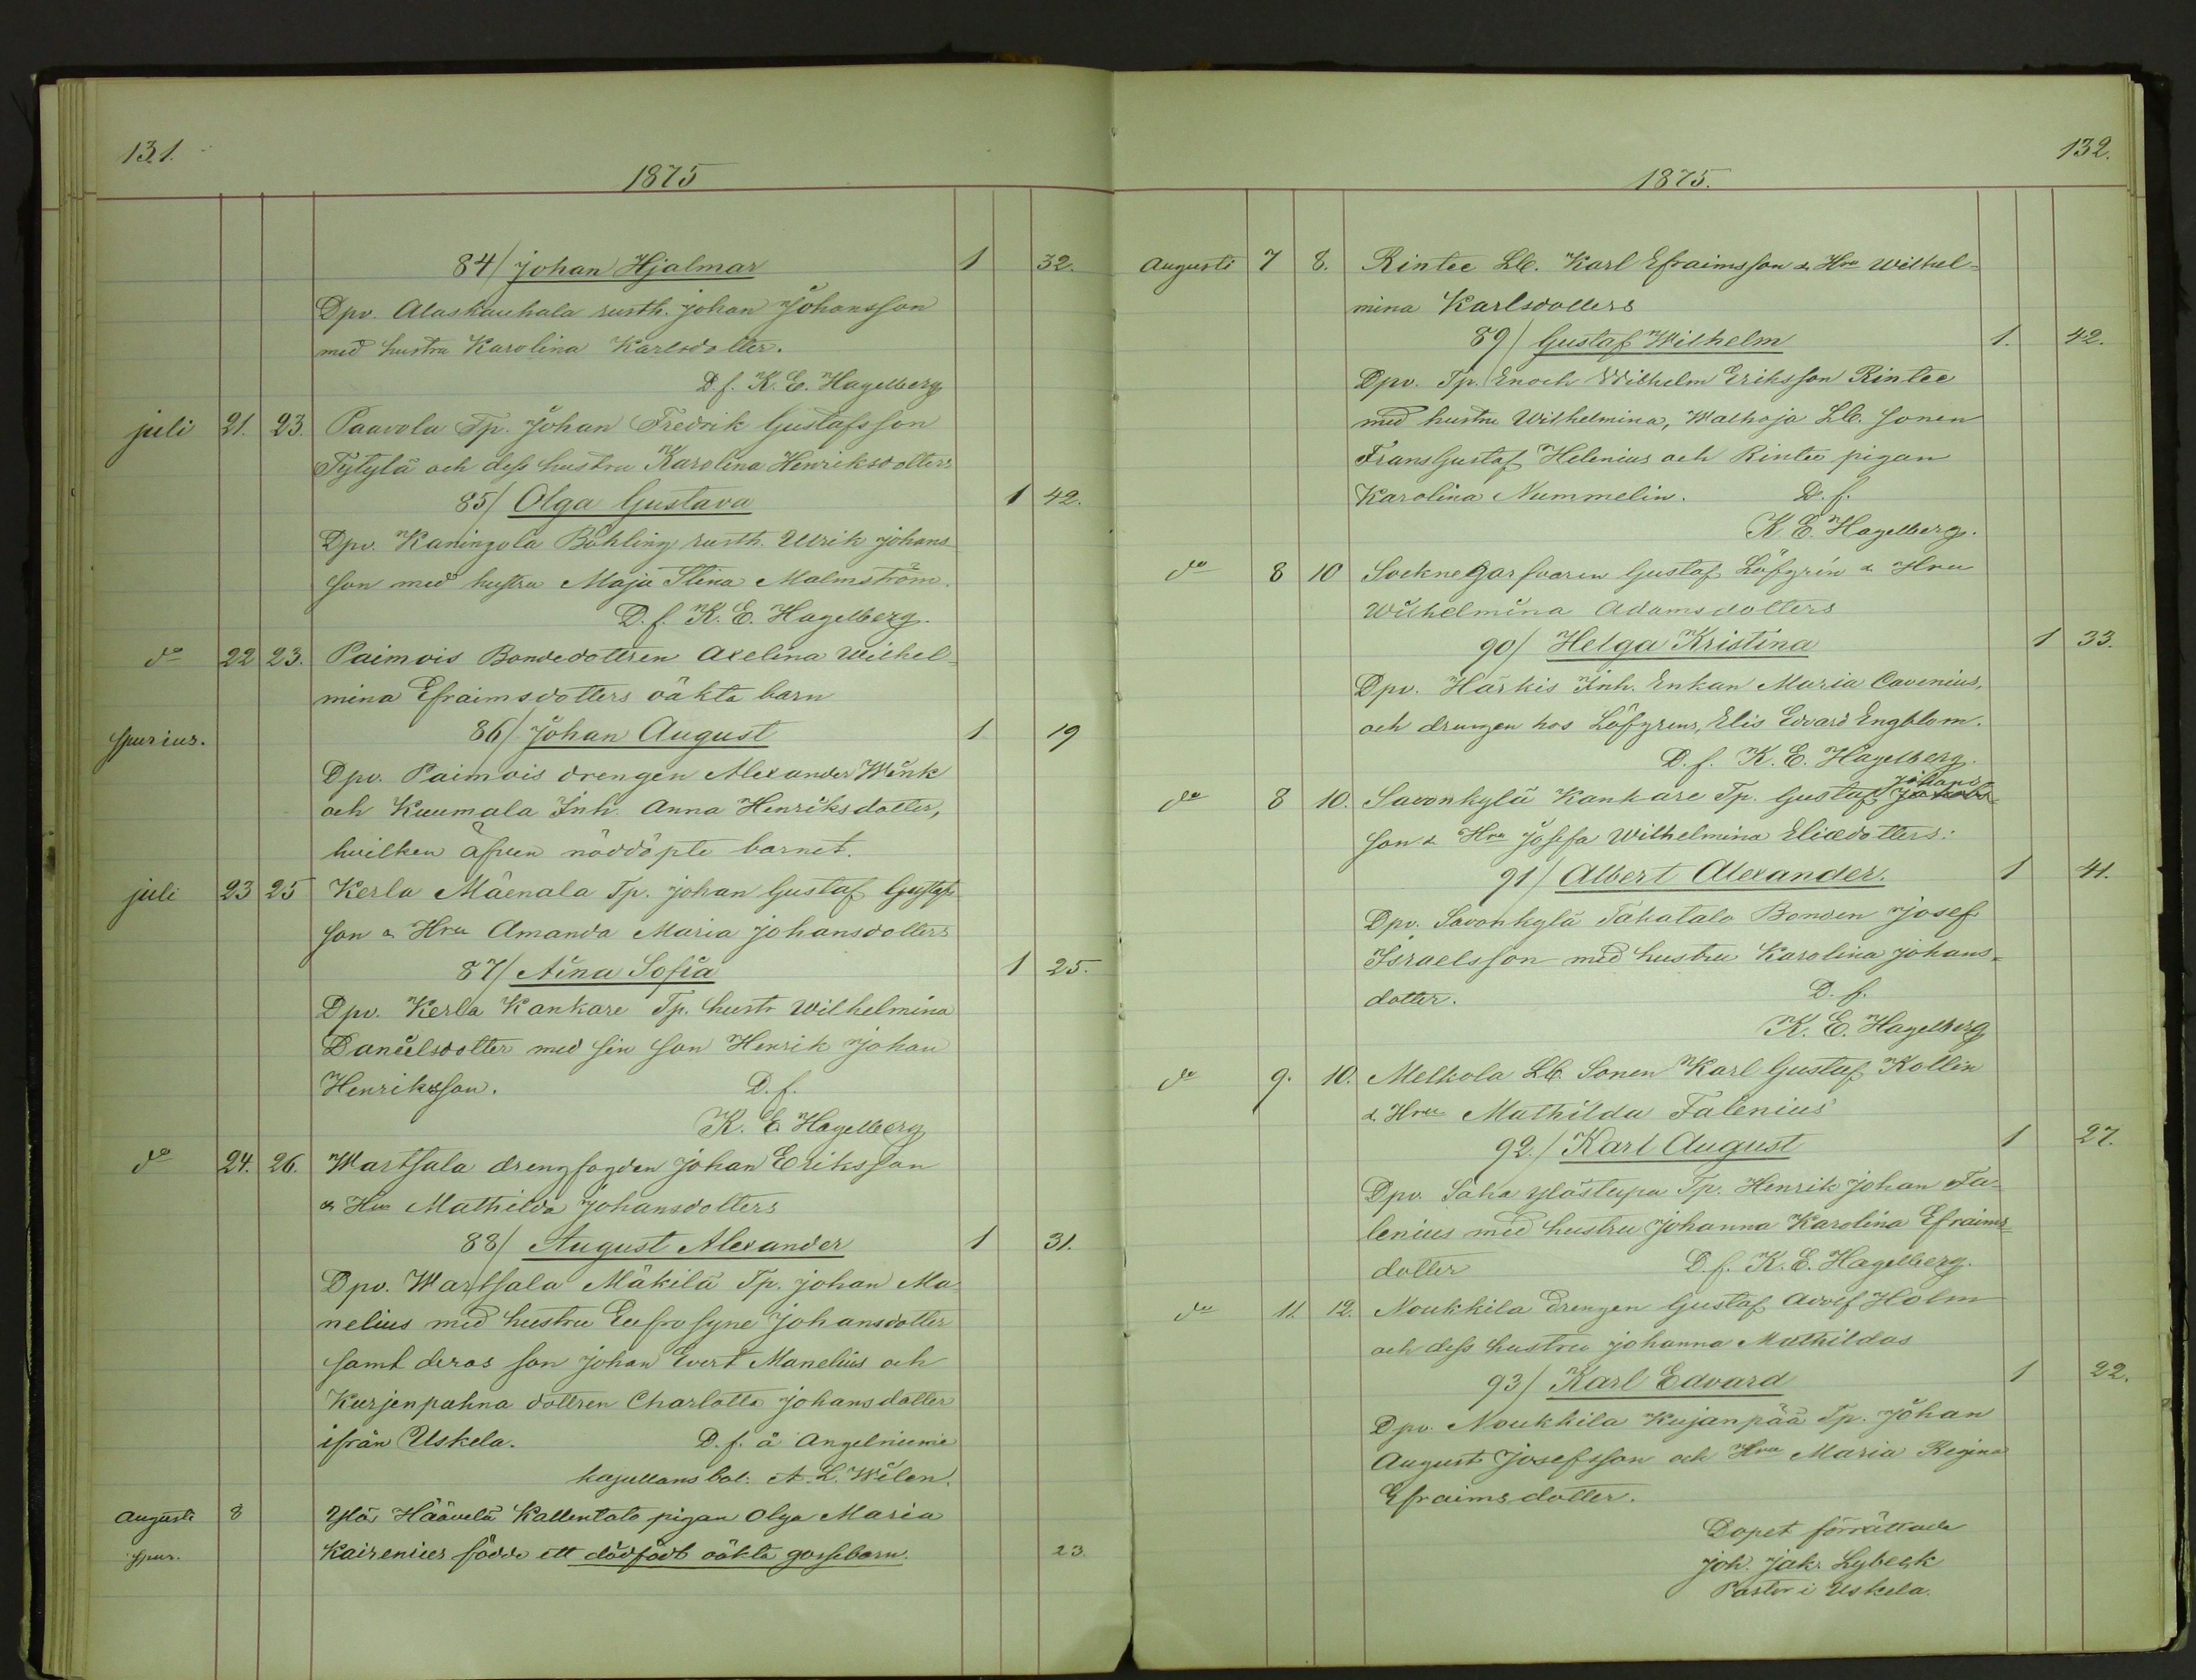 131.
1875
84/ Johan Hjalmar 1 32.
Dpv. Alaskauhala rusth. Johan Johansson
med hustru Karolina Karlsdotter.
D f. K. E. Hagelberg
juli 21. 23. Paavola Tp. Johan Fredrik Gustafsson
Tytylä och dess hustru Karolina Henriksdotters
85/ Olga Gustava 1 42.
Dpv. Kaningola Böhling rusth. Ulrik Johans
son med hustru Maja Stina Malmström.
D. f. K. E. Hagelberg.
do 22 23. Paimois Bondedottren Axelina Wilhel-
mina Efraimsdotters oäkta barn
spurius. 86/ Johan August 1 19
Dpv. Paimois drengen Alexander Wink
och Kuumala Inh. Anna Henriksdotter,
hvilken äfven nöddöpte barnet.
juli 23 25 Kerla Mäenala Tp. Johan Gustaf Gustafs
son & Hru Amanda Maria Johansdotters
87/ Aina Sofia 1 25.
Dpv. Kerla Kankare Tp. hustr Wilhelmina
Danielsdotter med sin son Henrik Johan
Henriksson. D. f.
K. E. Hagelberg
do 24. 26. Wartsala drengfogden Johan Eriksson
& Hru Mathilda Johansdotters
88/ August Alexander 1 31.
Dpv. Wartsala Mäkilä Tp. Johan Ma-
nelius med hustru Eufrosyne Johansdotter
samt deras son Johan Evert Manelius och
Kurjenpahna dottren Charlotta Johansdotter
ifrån Uskela. D. f. å Angelniemi
kapellans bol: A. L. Wilen.
Augusti 8 Ylö, Häävelä Kallentalo pigan Olga Maria
spur. Kairenius födde ett dödfödt oäkta gossebarn. 23.
132.
1875.
Augusti 7 8. Rintee Lb. Karl Efraimsson & Hru Wilhel-
mina Karlsdotters
89/ Gustaf Wilhelm 1. 42.
Dpv. Tp. Enoch Wilhelm Eriksson Rintee
med hustru Wilhelmina, Walhoja Lb. sonen
Frans Gustaf Helenius och Rintee pigan
Karolina Nummelin. D. f.
K E. Hagelberg.
do 8 10 Socknegarfvaren Gustaf Löfgrén & Hru
Wilhelmina Adamsdotters
90/ Helga Kristina 1 33.
Dpv. Härkis Inh. Enkan Maria Cavenius,
och drengen hos Löfgrens, Elis Edvard Engblom.
D. f. K. E. Hagelberg.
do 8 10. Savonkylä Kankare Tp. Gustaf Johans-
son & Hru Josefa Wilhelmina Eliædotters:
91/ Albert Alexander. 1 41.
Dpv. Savonkylä Tahatalo Bonden Josef
Israelsson med hustru Karolina Johans-
dotter. D. f.
K. E. Hagelberg
do 9. 10. Melkola Lb. Sonen Karl Gustaf Kollin
& Hru Mathilda Falenius
92./ Karl August 1 27.
Dpv. Saha Ylöstupa Tp. Henrik Johan Fa-
lenius med hustru Johanna Karolina Efraims-
dotter D. f. K. E. Hagelberg.
do 11. 12. Noukkila drengen Gustaf Adolf Holm
och dess hustru Johanna Mathildas
93/ Karl Edvard 1 22.
Dpv. Noukkila Kujanpää Tp. Johan
August Josefsson och Hru Maria Regina
Efraimsdotter.
Dopet förrättade
Joh. Jak. Lybeck
Pastor i Uskela.